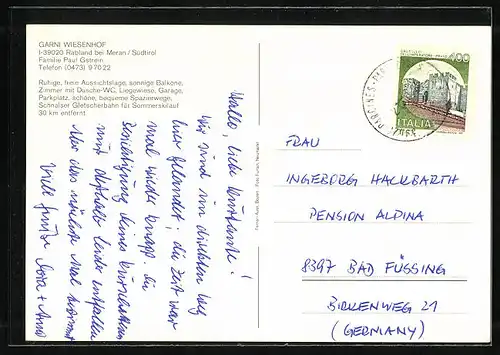 GARNI WIESENHOF
I-39020 Rabland bei Meran / Südtirol
Familie Paul Gstrein
Telefon (0473) 97022
Ruhige, freie Aussichtslage, sonnige Balkone,
Zimmer mit Dusche-WC, Liegewiese, Garage,
Parkplatz, schöne, bequeme Spazierwege,
Schnalser Gletscherbahn für Sommerskilauf
30 km entfernt
Hallo, liebe
Wir sind im direkten Weg
hier gelandet; die Zeit war
mal wieder knapp. die
Besichtigung deines
muß deshalb leider entfallen
Aber das nächste Mal kommt
Viele Grüße
400
ITALIA
FRAU
INGEBORG HACKBARTH
PENSION ALPINA
8397 BAD FÜSSING
BIRKENWEG 21
(GERMANY)